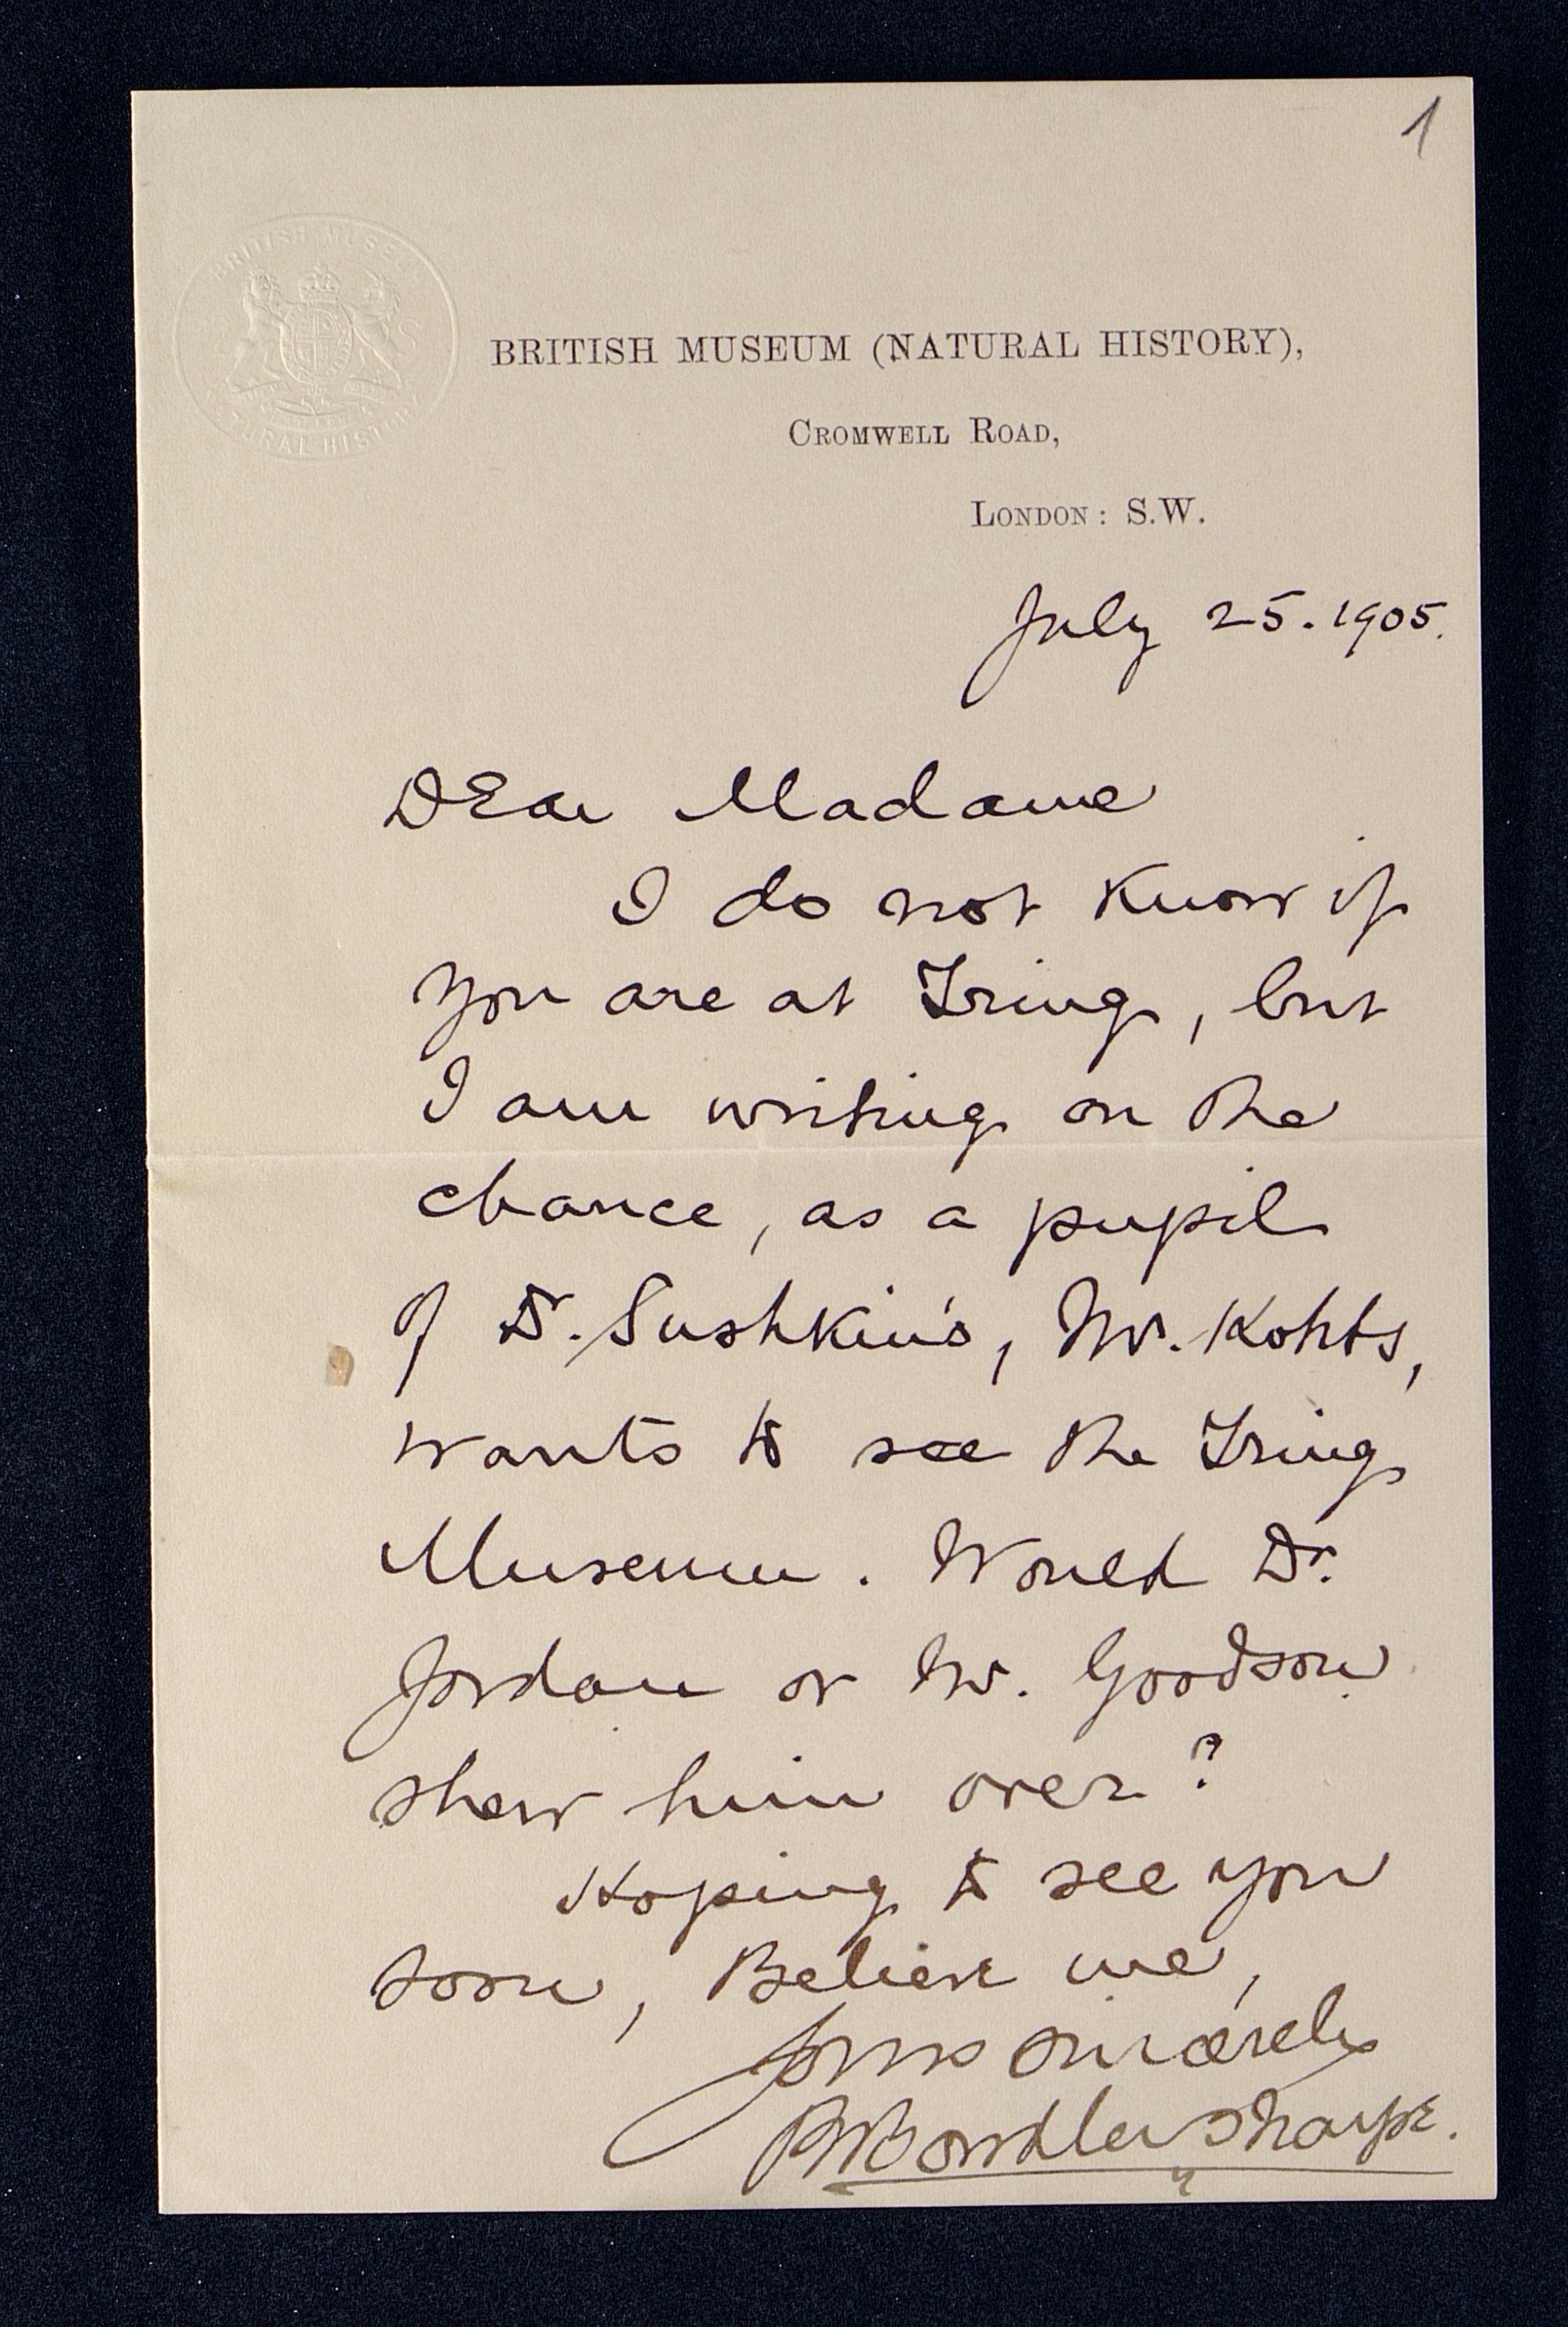 1
BRITISH MUSEUM
NATURAL HISTORY
BRITISH MUSEUM (NATURAL HISTORY),
CROMWELL ROAD,
LONDON: S.W.
July 25. 1905.
Dear Madame
I do not know if
you are at Tring, but
I am writing on the
chance, as a pupil
of Dr. Sushkin's, Mr. Kohts,
wants to see the Tring
Museum. Would Dr.
Jordan or Mr. Goodson
shew him over?
Hoping to see you
soon, Believe me,
Yours sincerely
R Bowdler Sharpe.